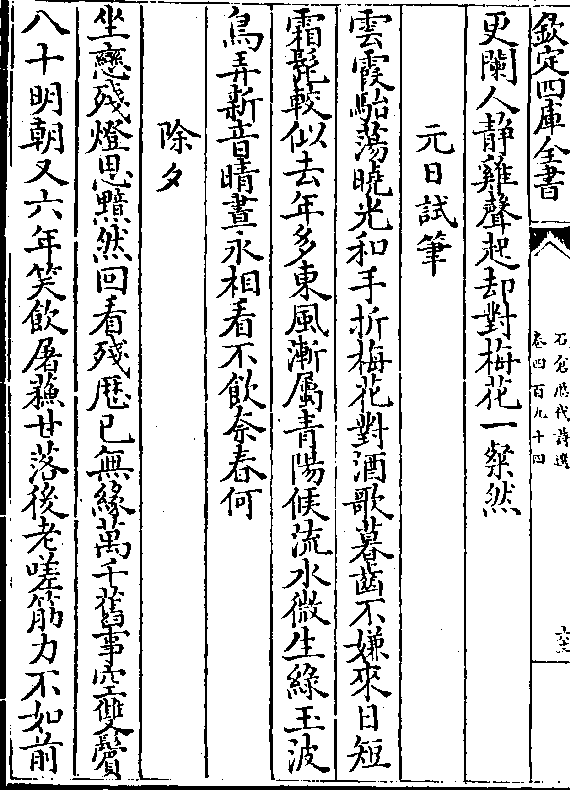 欽定四庫全書
石倉歷代詩選
卷四百九十四
更闌人静雞聲起却對梅花一粲然
元日試筆
雲霞駘蕩曉光和手折梅花對酒歌暮齒不嫌來日短
霜髭較似去年多東風漸屬青陽候流水微生緑玉波
鳥弄新音晴晝永相看不飲奈春何
除夕
坐戀殘燈思黯然回看殘歴已無緣萬千舊事空雙鬢
八十明朝又六年笑飲屠蘇甘落後老嗟筋力不如前